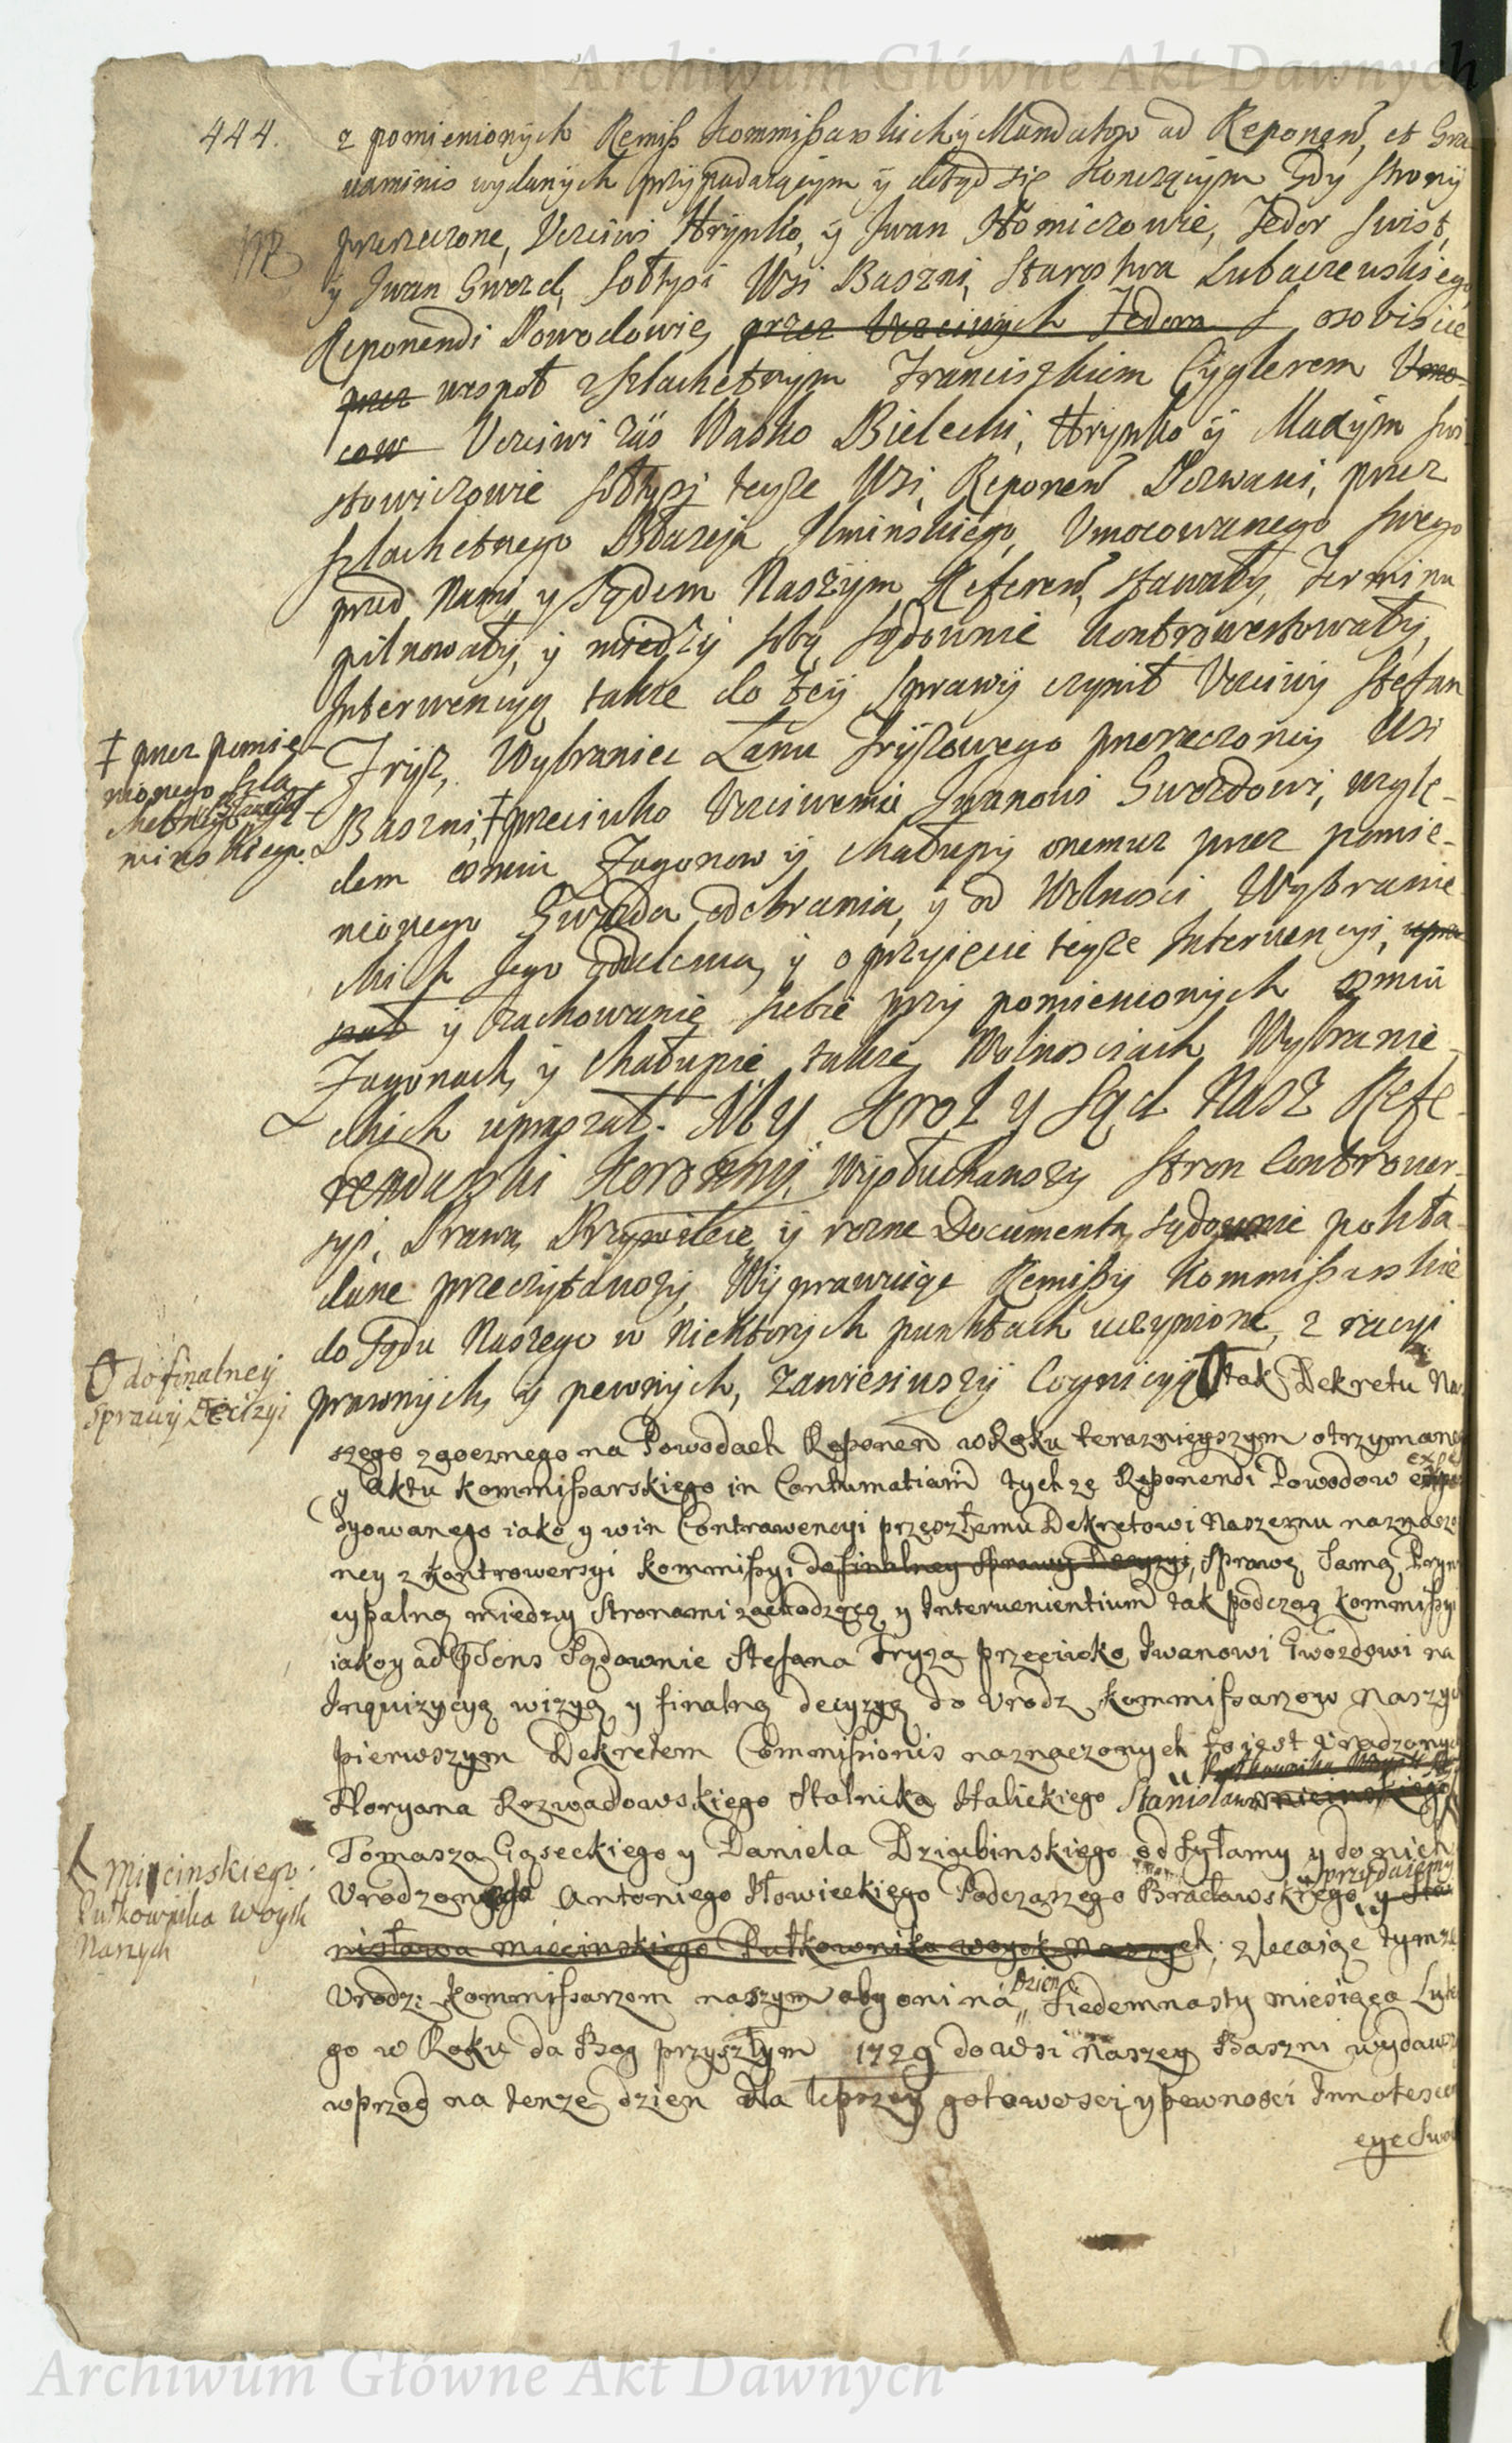 Archiwum Główne Akt Dawnych
444. z pomienionych Remiss Kommissarskich y Mandatow ad Reponen̄, et Gra
uaminis wydanych przypadaiącym y dotąd się konczącym Gdy strony
NB przerzeczone, Vcziwi Hrynko, y Jwan Homiczowie, Fedor Swist,
y Jwan Gwozd, Sołtysi Wsi Baszni, Starostwa Lubaczewskiego,
Reponendi Powodowie, przez Vcziwych Fedora osobiscie
przez wespoł z Szlachetnym Franciszkiem Cyglerem Vmo-
cow Vcziwi zaś Wasko Bielecki, Hrynko y Maxym Swi
stowiczowie Sołtysi teyze Wsi, Reponen̄ Pozwani, przez
Szlachetnego Błazeja Jlminskiego, Vmocowanego swego
przed Nami y Sądem Naszym Referen̄, stawały, Terminu
pilnowały, y miedzy sobą sądownie kontrowertowały,
Jnterwencyą takze do tey sprawy czynił Vcziwy Stefan
Fryz, Wybraniec Łanu Fryzowego przerzeczoney Wsi
‡ przez pomie-
nionego Szla
chetnego Błazeja Jl-
minskiego.
Baszni, ‡ przeciwko Vcziwemu Jwanowi Gwozdowi, wzglę-
dem osmiu Zagonow y chałupy onemuz przez pomie-
nionego Gwozda odebrania, y od Wolnosci Wybranie
ckich Jego oddalenia, y o przyięcie teyze Jnterwencyi, upra
szał y zachowanie siebie przy pomienionych osmiu
Zagonach, y chałupie, takze Wolnosciach Wybranie-
ckich upraszał. My Krol y Sąd Nasz Refe-
rendarski Koronny, Wysłuchawszy Stron Contrower-
syi, Prawa, Przywileie, y rozne Documenta, sądownie pokła-
dane przeczytawszy, Wyprawuiąc Remissy Kommissarskie
do Sądu Naszego w niektorych punktach uczynione, z racyi
prawnych, y pewnych, zawiesiwszy Cognicyą tak Dekretu Na
do finalney
sprawy Decizyi
szego zaocznego na Powodach Reponen̄ w Roku terazniejszym otrzymane
y Aktu Kommissarskiego in Contumatiam tychze Reponendi Powodow expe
dyowanego iako y win Contrawencyi przeszłemu Dekretowi Naszemu naznaczo
ney z kontrowersyi Kommissyi do finalney sprawy Decyzyi, Sprawę samą Pryn
cypalną miedzy Stronami zachodzącą y Jnteruenientium tak podczas Kommissyi
iako y ad Sądownie Stefana Fryza przeciwko Jwanowi Gwozdowi na
Jnquizycyą wizyą y finalną decyzyą do Vrodz Kommissarzow Naszych
pierwszym Dekretem Commissionis naznaczonych to iest Vrodzonych
Floryana Rozwadowskiego Stolnika Halickiego Stanisława Miecinskiego
Tomasza Gąseckiego y Daniela Dziubinskiego odsyłamy y do nich
Miecinskiego
Pułkownika woysk
Naszych
Vrodzonego Antoniego Howieckiego Podczaszego Bracławskiego przydaiemy y Sta
nisława Miecinskiego Pułkownika woysk Naszych, zlecaiąc tymze
Vrodz: Kommissarzom naszym aby oni na Dzien Siedemnasty miesiąca Lute
go w Roku da Bog przyszłym 1729 do wsi Naszey Baszni wydawszy
wprzod na tenze dzien dla lepszey gotowosci y pewnosci Jnnotescen
cye swoie
Archiwum Główne Akt Dawnych